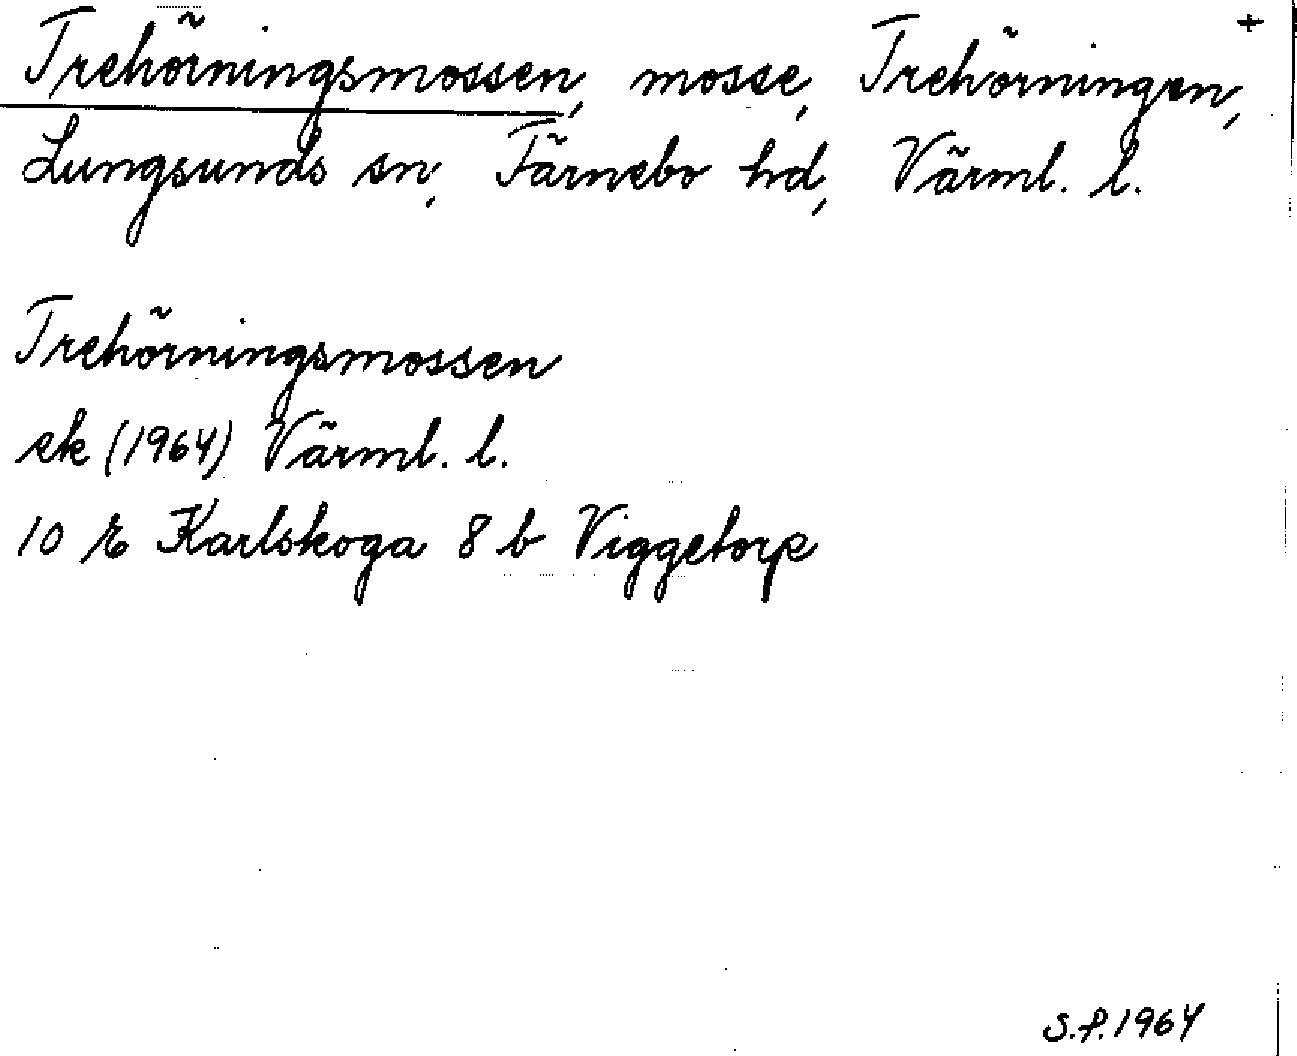 Trehörningsmossen, mosse, Trehörningen, +
Lungsunds sn, Färnebo hd, Värml. l.
Trehörningsmossen
ek (1964) Värml. l.
10 E Karlskoga 8 b Viggetorp
S.P. 1964